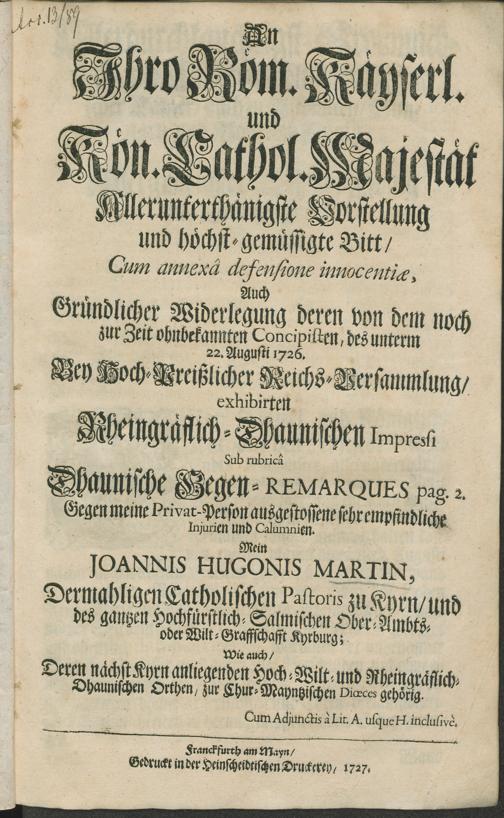 An
Ihro Röm. Käyserl.
und
Kön. Cathol. Majestät
Allerunterthänigste Vorstellung
und höchst-gemüssigte Bitt/
Cum annexâ defensione innocentiæ,
Auch
Gründlicher Widerlegung deren von dem noch
zur Zeit ohnbekannten Concipisten, des unterm
22. Augusti 1726.
Bey Hoch-Preißlicher Reichs-Versammlung/
exhibirten
Rheingräflich-Dhaunischen Impressi
Sub rubricâ
Dhaunische Gegen-REMARQUES pag. 2.
Gegen meine Privat-Person ausgestossene sehr empfindliche
Injurien und Calumnien.
Mein
JOANNIS HUGONIS MARTIN,
Dermahligen Catholischen Pastoris zu Kyrn/ und
des gantzen Hochfürstlich-Salmischen Ober-Ambts-
oder Wilt-Graffschafft Kyrburg;
Wie auch/
Deren nächst Kyrn anliegenden Hoch-Wilt-und Rheingräflich-
Dhaunischen Orthen/ zur Chur-Mayntzischen Diœces gehörig.
Cum Adjunctis à Lit. A. usque H. inclusivè.
Franckfurth am Mayn/
Gedruckt in der Heinscheidtischen Druckerey, 1727.